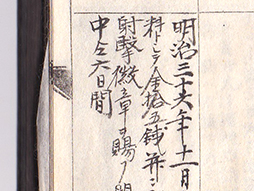 明治三十六年十一月
料トシテ金拾五銭并ニ
射撃徽章ヲ賜ワ
中仝六日間